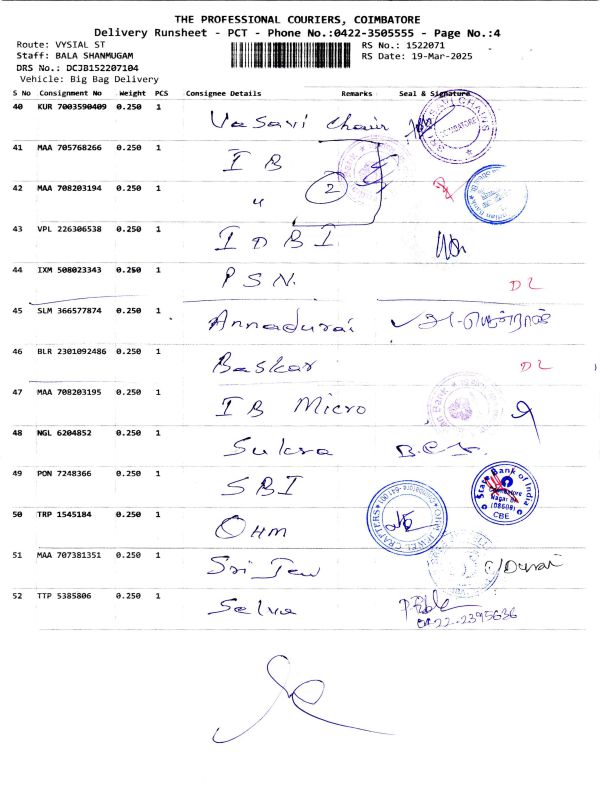 THE PROFESSIONAL COURIERS, COIMBATORE
Delivery Runsheet - PCT - Phone No.:0422-3505555 - Page No.:4
Route: VYSIAL ST
RS No.: 1522071
Staff: BALA SHANMUGAM
RS Date: 19-Mar-2025
DRS No.: DCJB152207104
Vehicle: Big Bag Delivery
S No Consignment No Weight PCS Consignee Details Remarks Seal & Signature
40 KUR 7003590409 0.250 1 Vasavi Chair
41 MAA 705768266 0.250 1 I B
42 MAA 708203194 0.250 1 " 2
43 VPL 226306538 0.250 1 I D B I
44 IXM 508023343 0.250 1 P S N. DL
45 SLM 366577874 0.250 1 Annadurai
46 BLR 2301092486 0.250 1 Baskar DL
47 MAA 708203195 0.250 1 I B Micro
48 NGL 6204852 0.250 1 Sukra
49 PON 7248366 0.250 1 SBI
State Bank of India
Coimbatore
Nagar Br
(08608)
CBE
50 TRP 1545184 0.250 1 OHM
51 MAA 707381351 0.250 1 Sri Jew
52 TTP 5385806 0.250 1 Selva
0422-2395636